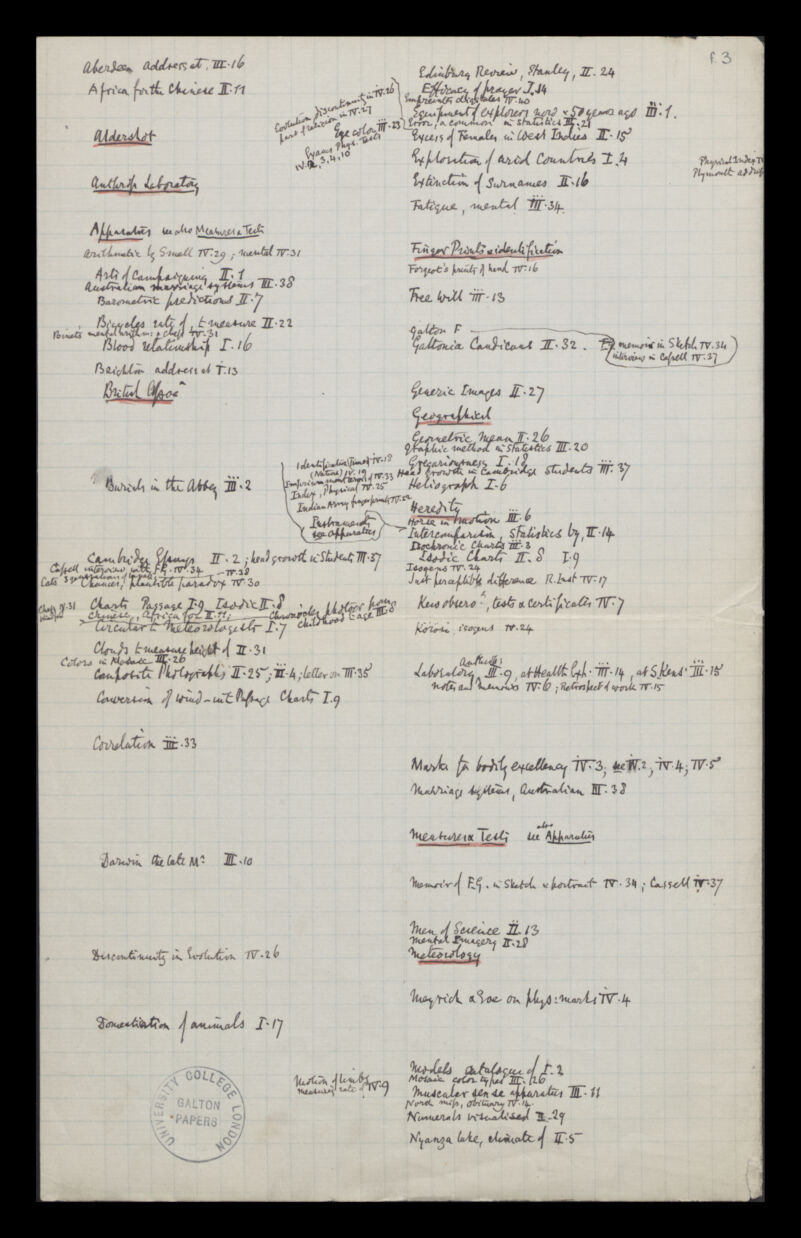 f. 3
Aberdeen address at. III.16
Africa for the Chinese II.11
Aldershot
Anthrop Laboratory
Apparatus see also Measures & Tests
Arithmetic by Smell IV.29; mental IV.31
Arts of Campaigning II.1
Australian marriage systems III.38
Barometric predictions II.7
Bicycles rate of to measure II.22
Blood relationship I.16
Brighton address at I.13
British Assoc
Burials in the Abbey III.2
Cambridge II.2; head growth in Students III.37
Cassell interview with F.G. IV.34
Cats
Chances, plausible paradox IV.30
Chess IV.31
Charts Passage I.9 Isodic II.8
Chinese, Africa for II.11;
Circular to Meteorologists I.7
Clouds to measure height of II.31
Colors in Mosaic III.26
Composite Photographs II.25; III.4; letter on III.35
Conversion of wind - into Passage Charts I.9
Correlation III.33
Darwin the late Mr III.10
Discontinuity in Evolution IV.26
Domestication of animals I.17
UNIVERSITY COLLEGE LONDON
GALTON PAPERS
Evolution discontinuity in IV.26
part of religion in IV.27
Eye color III.25
Exams Phys. Tests
IV.2, 3, 4, 10
Edinburg Review, Stanley, II.24
Efficacy of prayer I.14
Equipment of explorers now & 50 years ago III.1.
Error, a common in Statistics III.21
Excess of Females in West Indies II.15
Exploration of arid Countries I.4
Extinction of Surnames II.16
Fatigue, mental III.34
Physical Index IV
Plymouth address
Finger Prints & identification
Forgeot's prints of hand IV.16
Free Will III.13
Galton F
Galtonia Candicans II.32.
memoir in Sketch IV.34
interview in Cassell IV.37
Generic Images II.27
Geographical
Geometric Mean II.26
Graphic method in Statistics III.20
Gregariousness I.18
Head growth in Cambridge Students III.37
Heliograph I.6
Identification (Times) IV.18
(Nature) IV.19
Index, Physical IV.25
Indian Army fingerprints IV.22
Instruments
see Apparatus
Heredity
Horse in motion III.6
Intercomparison, Statistics by, II.14
Isochronic Charts III.3
Isodic Charts II.8 I.9
Isogens IV.24
Just perceptible difference R. Inst IV.17
Kew observy, tests & certificates IV.7
Körösi isogens IV.24
Laboratory Anthrop: III.9, at Health Exh. III.14, at S. Kens: III.15
notes and memoirs IV.6; Retrospect of work IV.15
Marks for bodily excellency IV.3; see IV.2, IV.4; IV.5
Marriage systems, Australian III.38
Measures & Tests see also Apparatus
Memoir of F.G. in Sketch & portrait IV.34; Cassell IV.37
Men of Science II.13
Mental Imagery II.28
Meteorology
Meyrick & Eve on phys: marks IV.4
Models catalogue of I.2
Mosaic color types III.26
Motion of limbs
measuring rate of IV.9
Muscular sense apparatus III.11
obituary IV.14
Numerals visualised II.29
Nyanza lake, climate of II.5